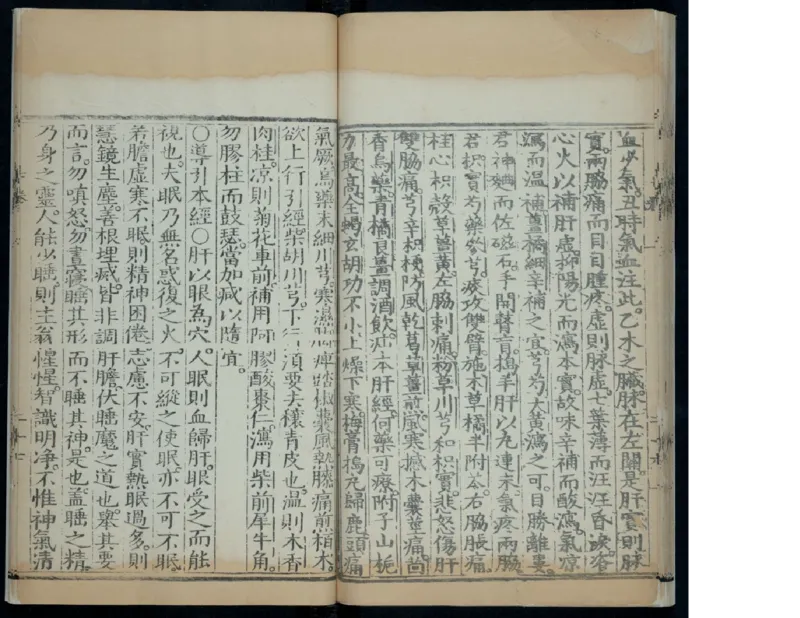 血少氣。丑時氣血注此。乙木之臟脉在左關。是肝實則脉
實。兩脇痛而目目腫疼。虛則脉虛。七葉薄而汪汪昏淚落
心火以補肝虛。抑陽光而瀉本實。故味辛補而酸瀉。氣凉
瀉而温補。薑橘細辛補之宜。芎芍大黃瀉之可。目勝離婁。
君神麯而佐磁石。手開瞽盲。搗羊肝以丸連末。氣疼兩脇
君枳實芍藥參芎。痰攻雙臂。施木草橘半附苓。右脇脹痛。
桂心枳殼草薑黃。左脇刺痛。粉草川芎和枳實。悲怒傷肝
雙脇痛。芎辛枳梗防風乾葛草薑煎。風寒撼木囊莖痛。茴
香烏藥青橘良薑調酒飲。疝本肝經。何藥可療。附子山梔
力最高。全蝎玄胡功不小。上燥下寒。梅膏搗丸歸鹿。頭痛
氣厥。烏藥末細川芎。寒濕脚痺踏椒囊。風熱膝痛煎栢木。
欲上行引經。柴胡川芎。下行須要去穰青皮也。温則木香
肉桂。凉則菊花車前。補用阿膠酸棗仁。瀉用柴前犀牛角。
勿膠柱而鼓瑟。當加减以隨宜。
○導引本經○肝以眼為穴。人眠則血歸肝。眼受之而能
視也。夫眠乃無名惑復之火。不可縱之使眠。亦不可不眠。
若膽虛寒不眠。則精神困倦。志慮不安。肝實熱眠過多。則
慧鏡生塵。善根埋滅。皆非調肝膽。伏睡魔之道也。舉其要
而言。勿嗔怒。勿晝寢。睡其形而不睡其神。是也。蓋睡之精。
乃身之靈。人能少睡。則主翁惺惺。智識明净。不惟神氣清